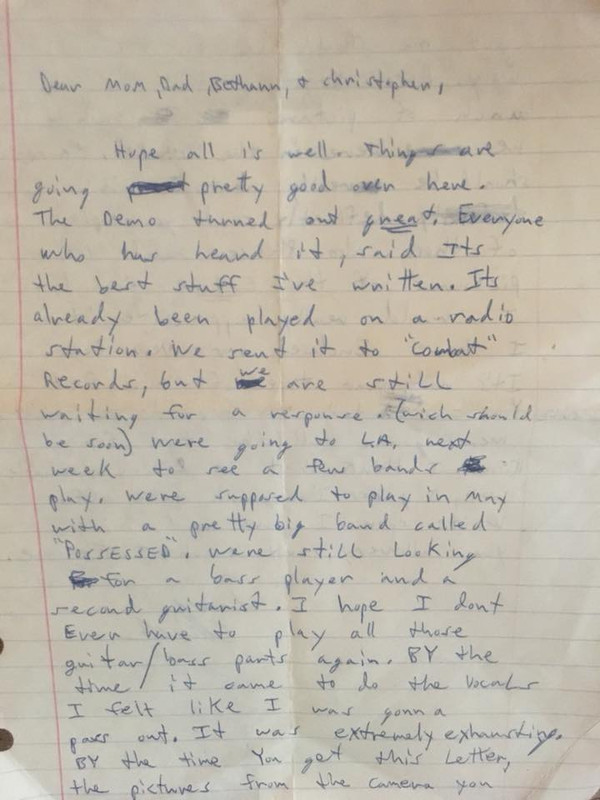 Dear Mom, Dad, Bethann, + christopher,
Hope all is well. Things are
going pretty good over here.
The Demo turned out great. Everyone
who has heard it, said Its
the best stuff I've written. Its
already been played on a radio
station. We sent it to "Combat"
Records, but we are still
waiting for a response. (wich should
be soon) were going to L.A. next
week to see a few bands
play. were supposed to play in May
with a pretty big band called
"POSSESSED". were still Looking
for a bass player and a
second guitarist. I hope I dont
Ever have to play all those
guitar/bass parts again. BY the
time it came to do the vocals
I felt like I was gonna
pass out. It was extremely exhausting.
BY the time You get this Letter,
the pictures from the camera you